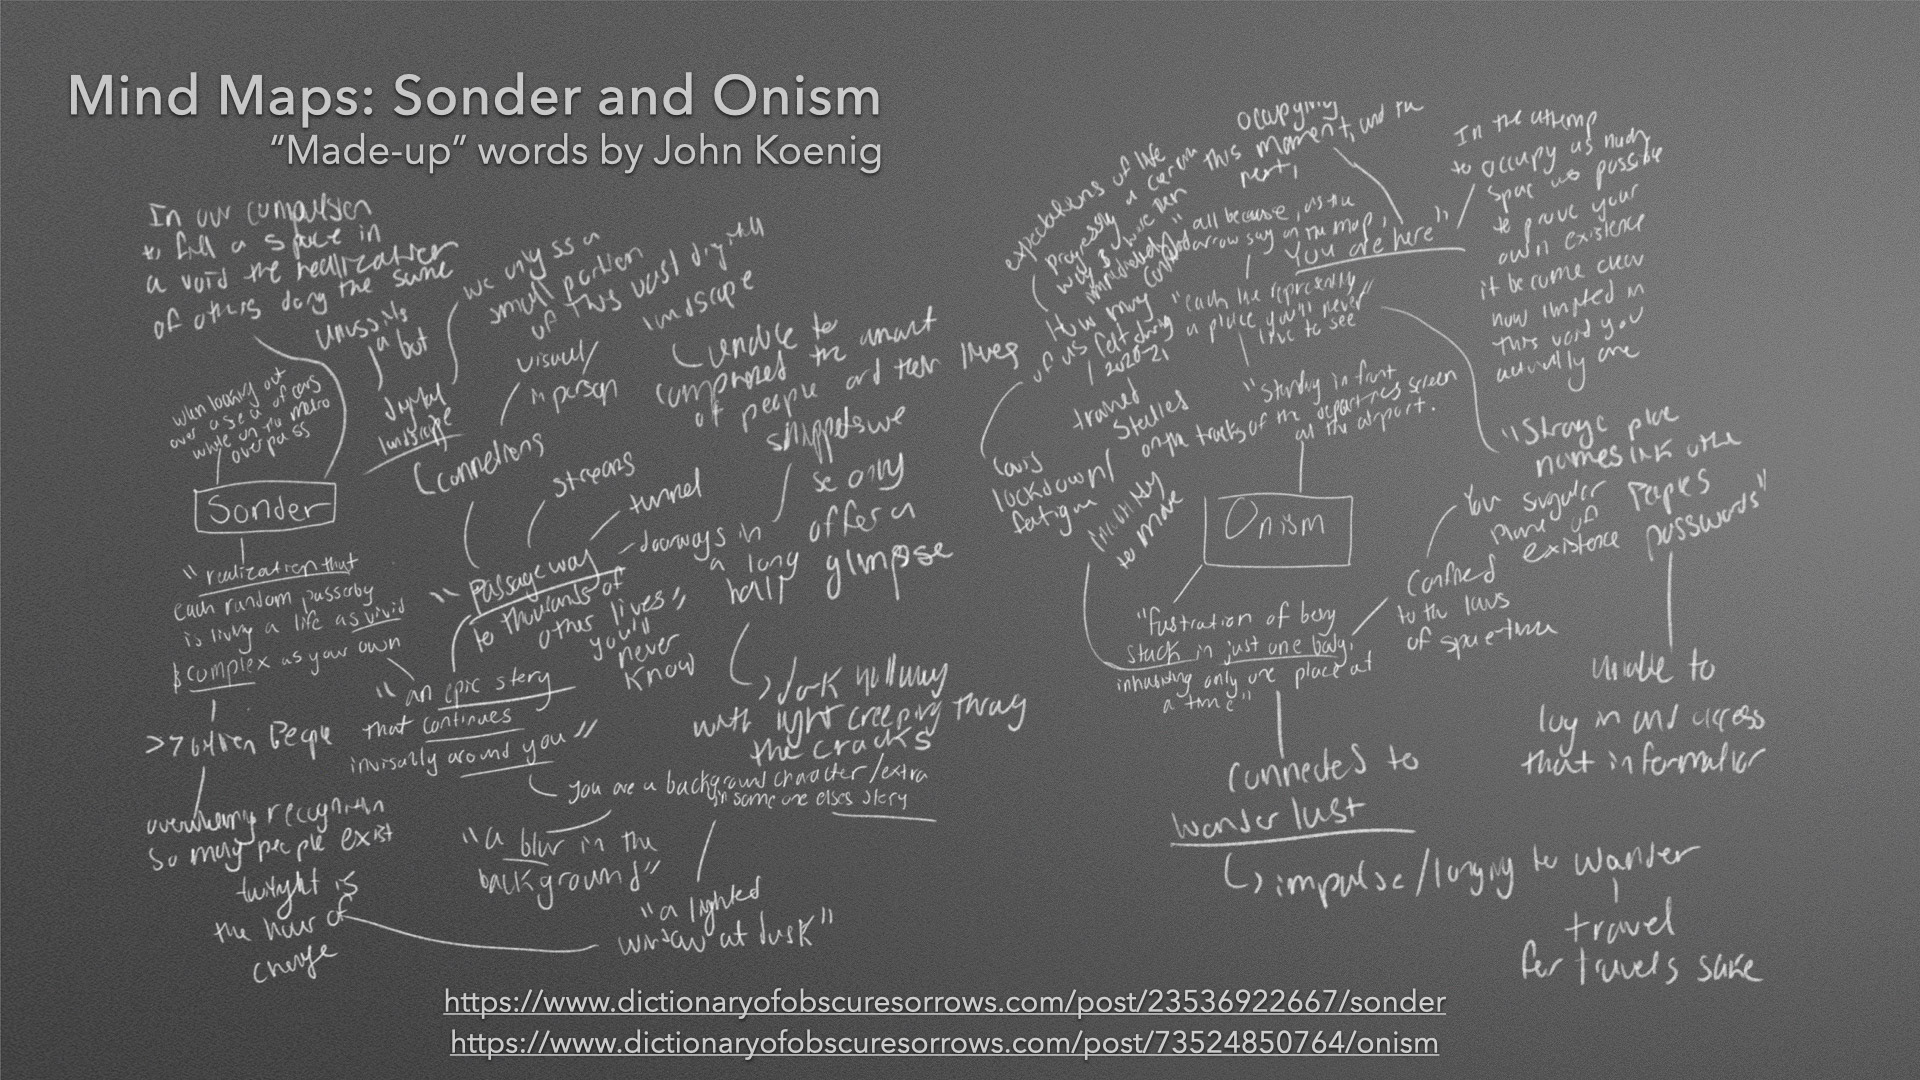 Mind Maps: Sonder and Onism
“Made-up” words by John Koenig
In our compulsion
to fill a space in
a void the realization
of others doing the same
when looking out
over a sea of cars
while on the metro
overpass
Sonder
"realization that
each random passerby
is living a life as vivid
& complex as your own
>7 billion People
recognition
so many people exist
twilight is
the hour of
change
digital
landscape
we only see a
small portion
of this vast digital
landscape
visual/
in person
connections
streams
tunnel
doorways in
a long
hall
"passageway
to thousands of
other lives"
you'll
never
know
unable to
the amount
of people and their lives
snippets we
se only
offer a
glimpse
"an epic story
that continues
around you"
dark hallway
with light creeping
the cracks
you are a background character/extra
in some one elses story
"a blur in the
background"
"a lighted
window at dusk"
occupying
this moment, and the
next,
In the
to occupy as much
as possible
to prove your
own existence
it become clear
how limited in
this void you
actually are
expectations of life
all because, as the
arrow say on the map,
"You are here"
"each line representing
a place you'll never
live to see
How many
of us felt during
2020-21
lockdown/
inability
to move
"Standing in front
of the departures screen
at the airport.
Onism
"Strange place
names
peoples
passwords"
Your singular
plane of
existence
confined
to the laws
of
"fustration of being
stuck in just one body,
inhabiting only one place at
a time"
unable to
log in and access
that information
connected to
wanderlust
impulse/longing to wander
travel
for travels sake
https://www.dictionaryofobscuresorrows.com/post/23536922667/sonder
https://www.dictionaryofobscuresorrows.com/post/73524850764/onism